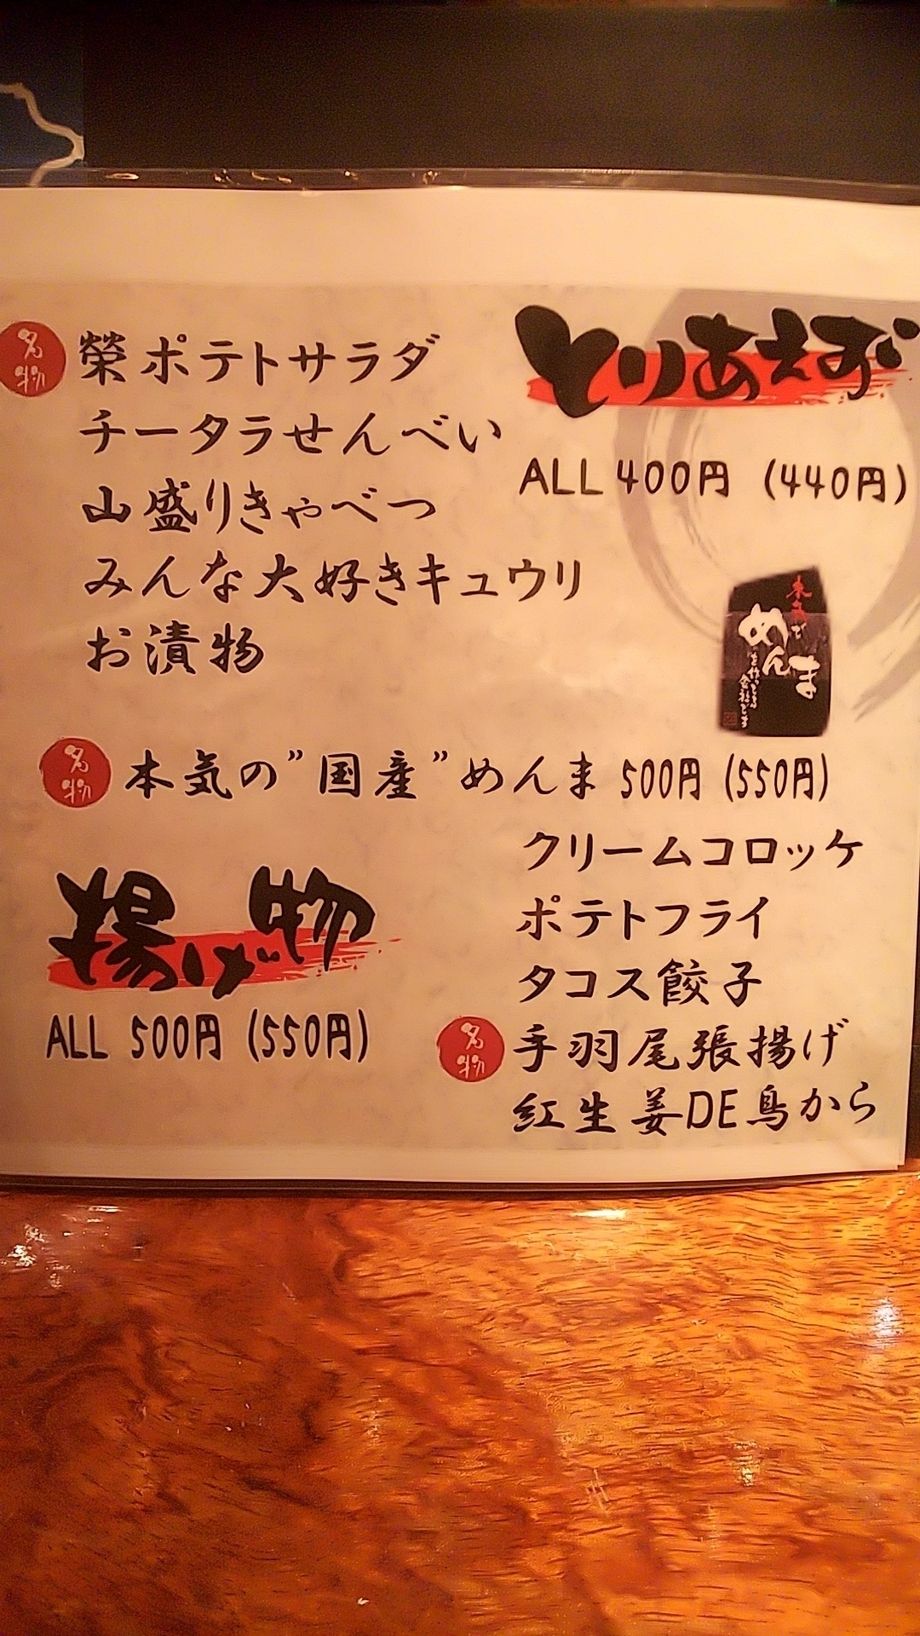 とりあえず
ALL 400円 (440円)
名物 榮ポテトサラダ
チータラせんべい
山盛りきゃべつ
みんな大好きキュウリ
お漬物
めんま
名物 本気の”国産”めんま 500円 (550円)
揚げ物
ALL 500円 (550円)
クリームコロッケ
ポテトフライ
タコス餃子
名物 手羽尾張揚げ
紅生姜DE鳥から